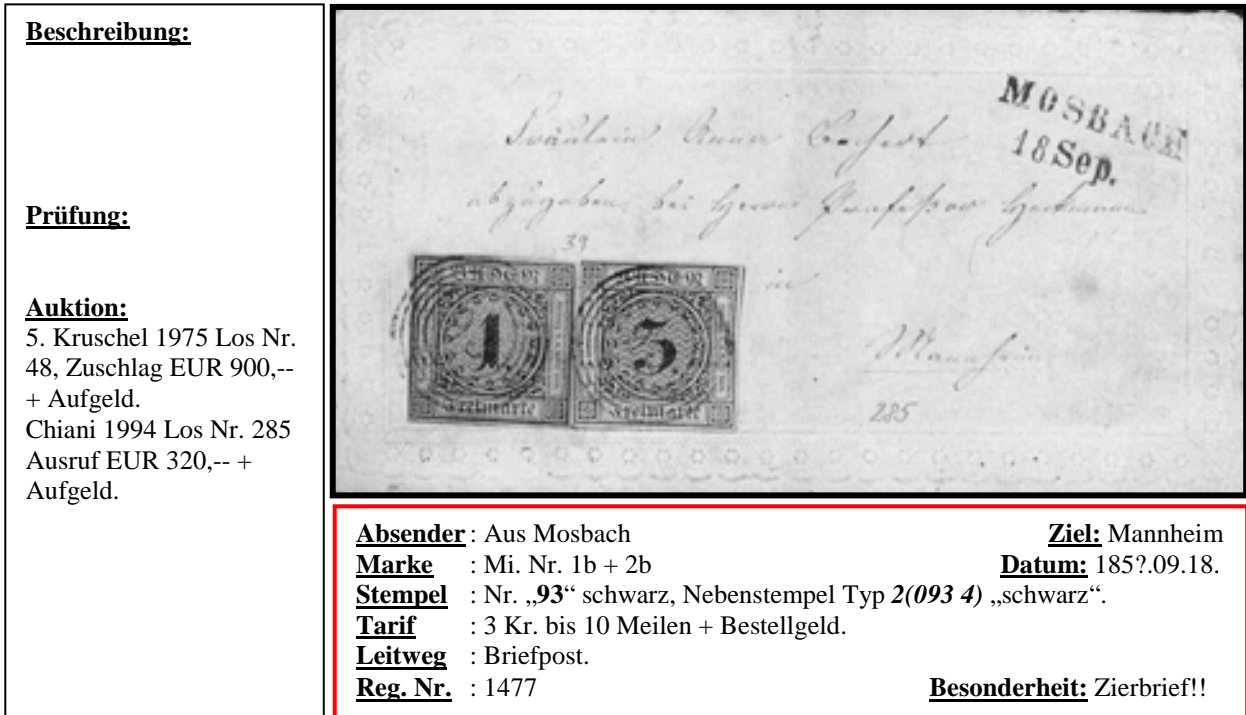 Beschreibung:
Prüfung:
Auktion:
5. Kruschel 1975 Los Nr.
48, Zuschlag EUR 900,--
+ Aufgeld.
Chiani 1994 Los Nr. 285
Ausruf EUR 320,-- +
Aufgeld.
MOSBACH
18 Sep.
Fräulein Anna
abzugeben bei Herrn Professor
39
in
BADEN BADEN
1 3
Freimarke Freimarke
Mannheim
285
Absender : Aus Mosbach Ziel: Mannheim
Marke : Mi. Nr. 1b + 2b Datum: 185?.09.18.
Stempel : Nr. „93“ schwarz, Nebenstempel Typ 2(093 4) „schwarz“.
Tarif : 3 Kr. bis 10 Meilen + Bestellgeld.
Leitweg : Briefpost.
Reg. Nr. : 1477 Besonderheit: Zierbrief!!